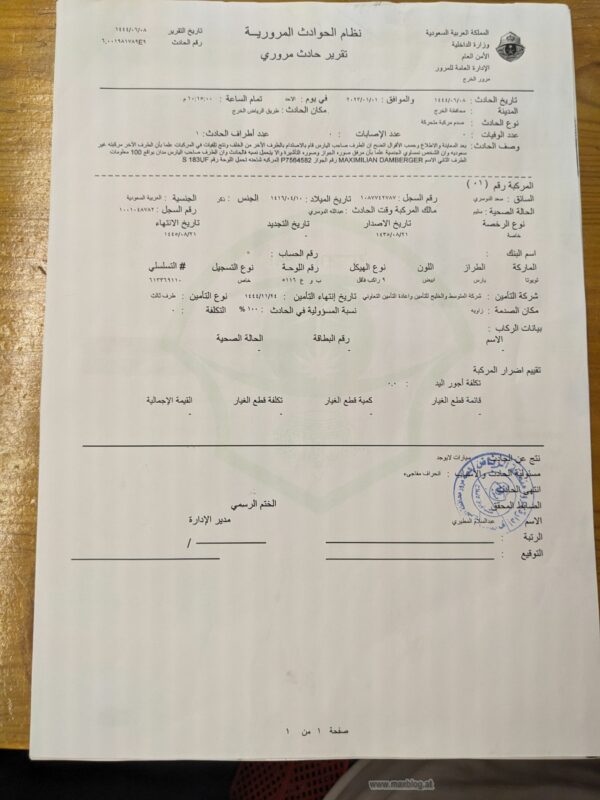 المملكة العربية السعودية
وزارة الداخلية
الأمن العام
الإدارة العامة للمرور
مرور الخرج
نظام الحوادث المروريـــة
تقرير حادث مروري
تاريخ التقرير ١٤٤٤/٠٦/٠٨
رقم الحادث
تاريخ الحادث : ١٤٤٤/٠٦/٠٨ والموافق : ٢٠٢٣/٠١/٠١ في يوم : الاحد تمام الساعة :
المدينة : محافظة الخرج مكان الحادث : طريق الرياض الخرج
نوع الحادث : صدم مركبة متحركة
عدد الوفيات : ٠ عدد الإصابات : ٠ عدد أطراف الحادث: ١
وصف الحادث : بعد المعاينة والاطلاع وحسب الأقوال اتضح ان الطرف صاحب اليارس قام بالاصطدام بالطرف الآخر من الخلف ونتج تلفيات في المركبات علما بأن الطرف الآخر مركبته غير
سعودية وان الشخص نمساوي الجنسية علما بأن مرفق صوره الجواز وصوره التأشيرة والا يتحمل نسبه فالحادث وان الطرف صاحب اليارس مدان بواقع 100 معلومات
الطرف الثاني الاسم MAXIMILIAN DAMBERGER رقم الجواز P7564582 المركبه شاحنه تحمل اللوحة رقم S 183UF
المركبة رقم (٠١)
السائق : سعد الدوسري رقم السجل : ١٠٨٧٧٤٢٧٨٧ تاريخ الميلاد : ١٤١٦/٠٤/١٠ الجنس : ذكر الجنسية : العربية السعودية
الحالة الصحية : سليم مالك المركبة وقت الحادث : عبدالله الدوسري رقم السجل : ١٠٠١٠٤٨٧٨٢
نوع الرخصة تاريخ الاصدار تاريخ التجديد تاريخ الانتهاء
خاصة ١٤٣٥/٠٨/٢١ - ١٤٤٥/٠٨/٢١
اسم البنك : رقم الحساب : ٠
الماركة الطراز اللون نوع الهيكل رقم اللوحة نوع التسجيل # التسلسلي
تويوتا يارس ابيض خاص ٦١٣٣٦٩١١٠
شركة التأمين : شركة المتوسط والخليج للتأمين واعادة التأمين التعاوني تاريخ إنتهاء التأمين : ١٤٤٤/١١/٢٤ نوع التأمين : طرف ثالث
مكان الصدمة : زاويه نسبة المسؤولية في الحادث : ١٠٠ % التكلفة : ٠
بيانات الركاب :
الاسم رقم البطاقة الحالة الصحية
- - -
تقييم اضرار المركبة
تكلفة أجور اليد : ٠.٠
قائمة قطع الغيار كمية قطع الغيار تكلفة قطع الغيار القيمة الإجمالية
- - - -
نتج عن الحادث سيارات لايوجد
مسئولية الحادث : انحراف مفاجىء
انتهى الحادث
الضابط المحقق الختم الرسمي
الاسم عبدالسلام المطيري مدير الإدارة
الرتبة : /
التوقيع :
صفحة ١ من ١
www.maxblog.at